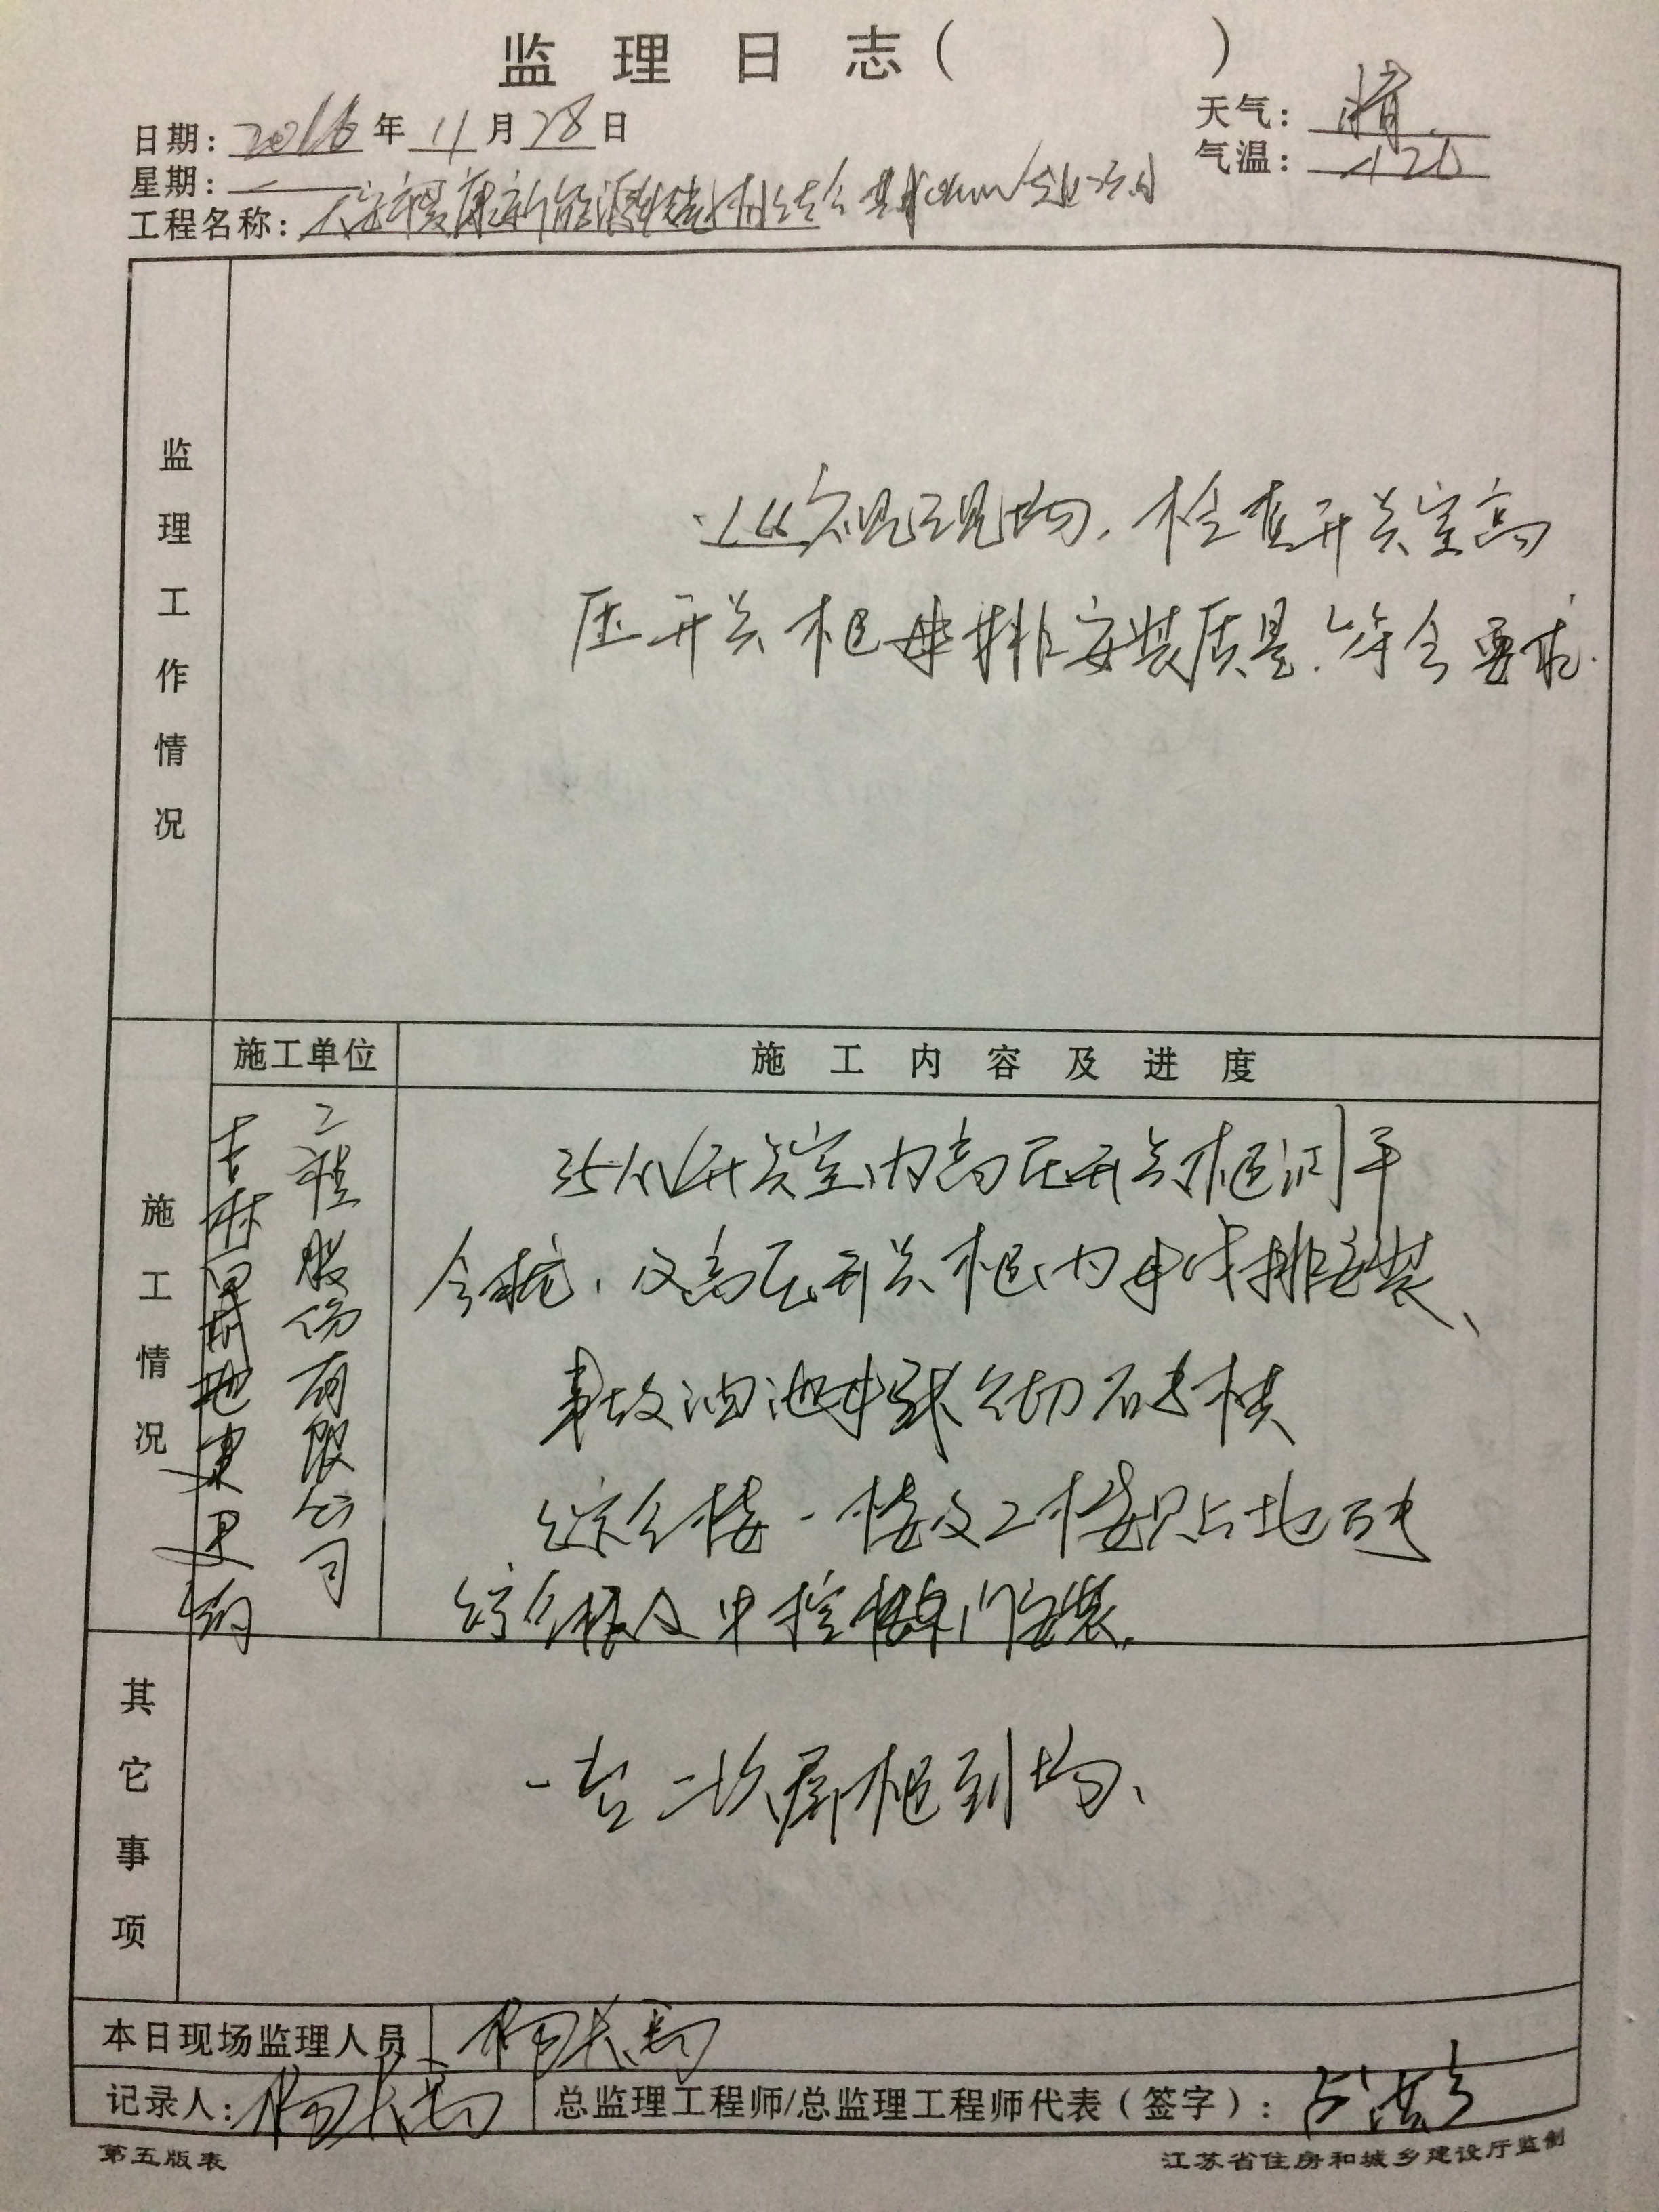 监理日志( )
日期: 2016年11月28日
天气: 晴
星期: 一
气温:
工程名称: 大安市爱康新能源
监理工作情况
巡视现场,检查开关室高
压开关柜母排安装质量.符合要求.
施工单位
施工内容及进度
施工情况
吉林
工程股份有限公司
35KV开关室内高压开关柜调平
及高压开关柜内母线排安装、
事故油池
综合楼一楼及二楼贴地砖
综合楼及中控楼 门安装.
其它事项
一台二次屏柜到场、
本日现场监理人员
杨长
记录人: 杨长
总监理工程师/总监理工程师代表(签字):
第五版表
江苏省住房和城乡建设厅监制